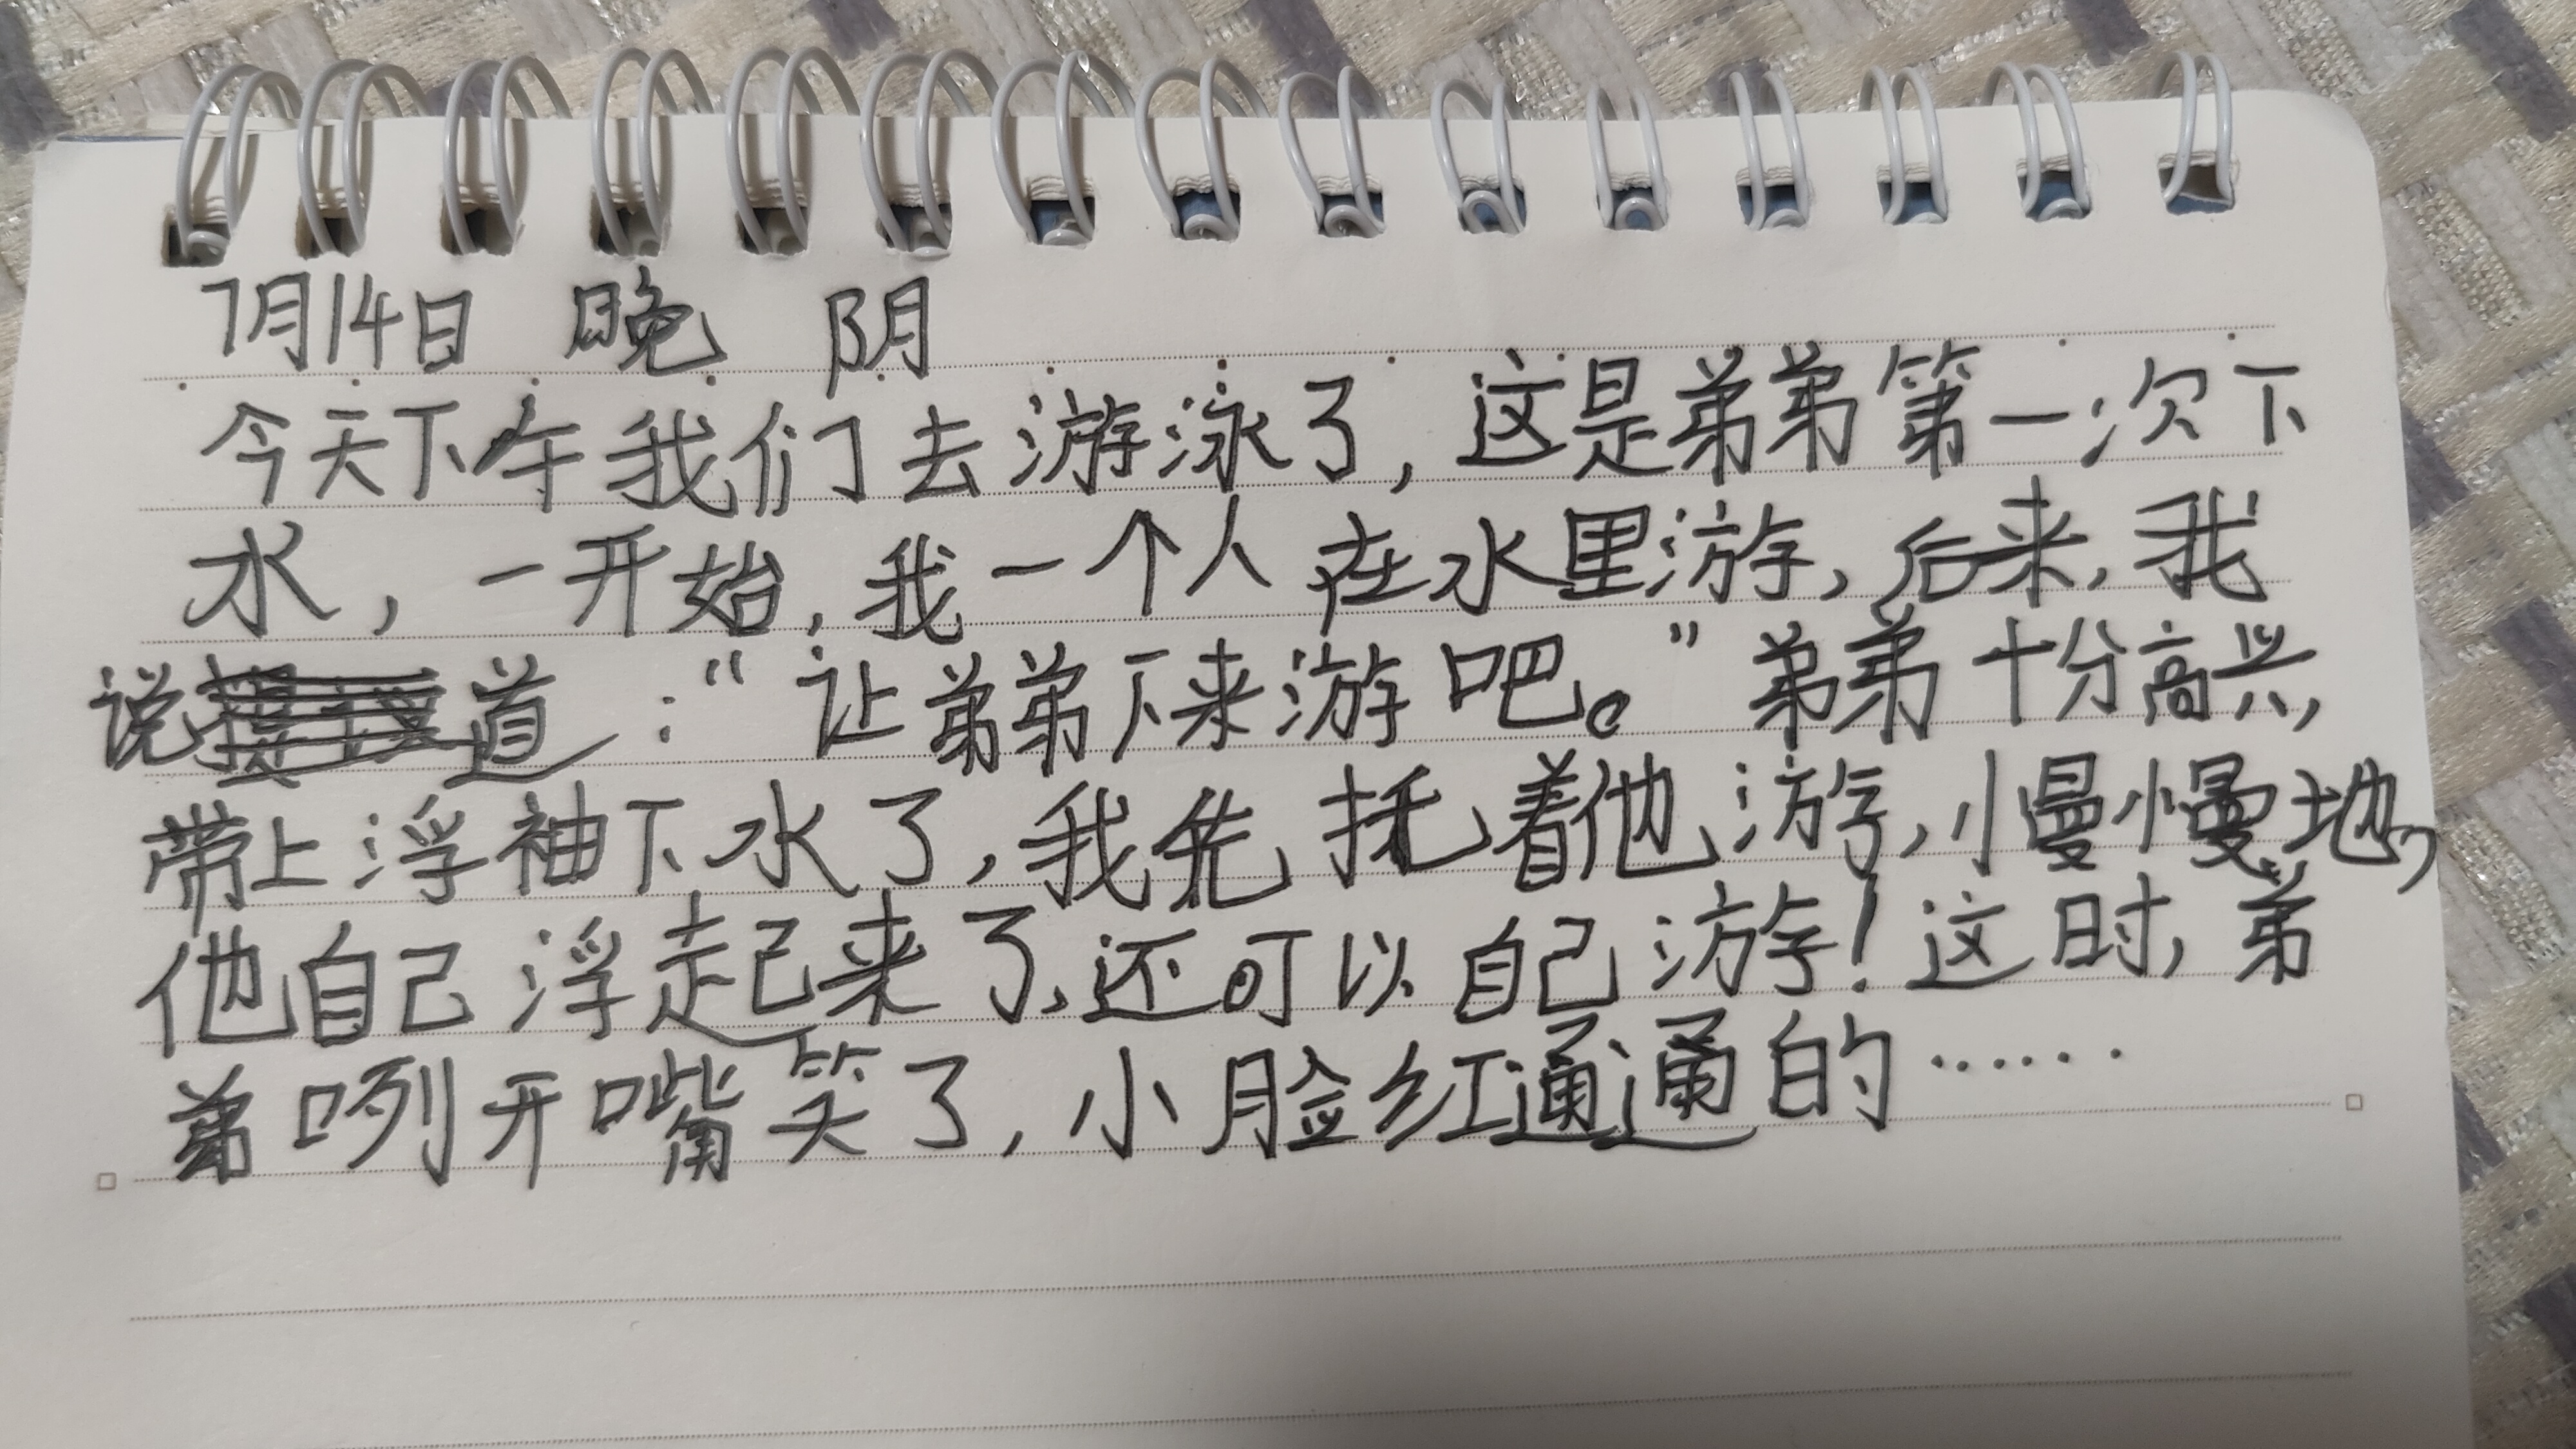 7月14日 晚 阴
今天下午我们去游泳了，这是弟弟第一次下
水，一开始，我一个人在水里游，后来，我
说道：“让弟弟下来游吧。”弟弟十分高兴，
带上浮袖下水了，我先托着他游，慢慢地，
他自己浮起来了、还可以自己游！这时，弟
弟咧开嘴笑了，小脸红通通的……